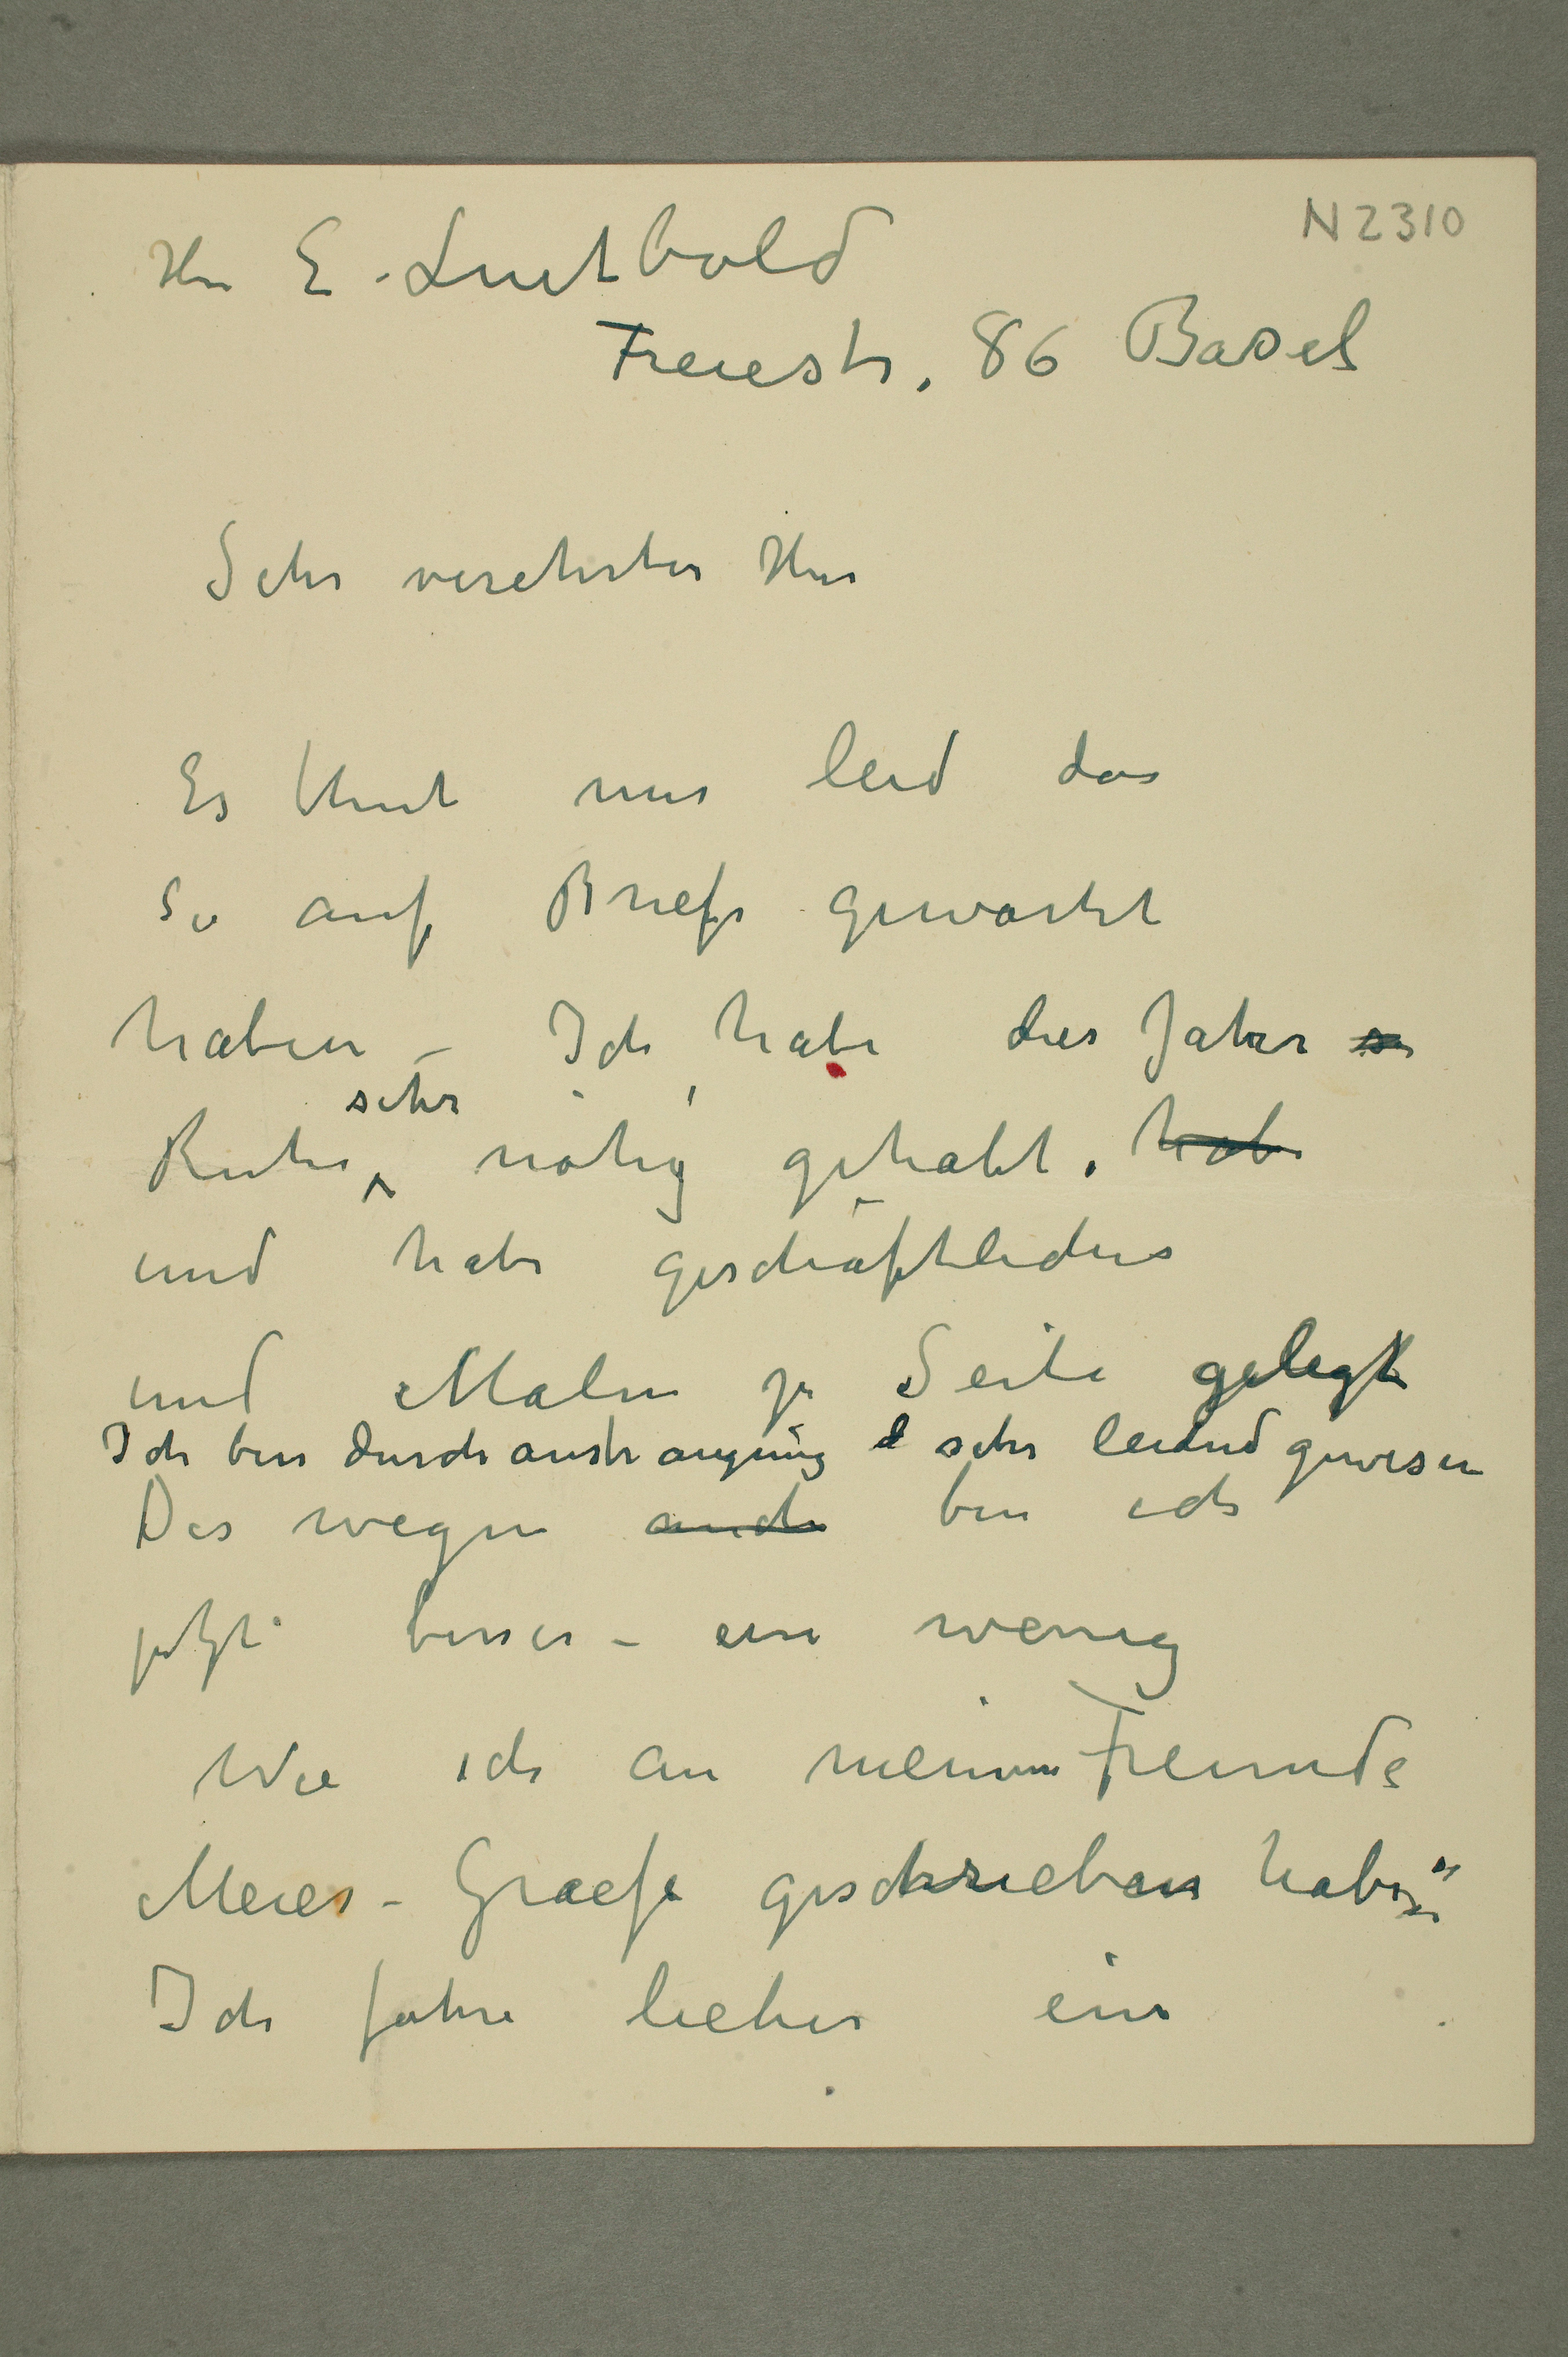 N 2310
Herr E. Luitbold
Freiestr. 86 Basel
Sehr verehrter Herr
Es thut mir leid das
Sie auf Briefe gewartet
haben – Ich habe dies Jahr
sehr
Ruhe nötig gehabt.  hab
und habe geschäftliches
und Malen zu Seite gelegt
Ich bin durch anstrangung sehr leidend gewesen
Des wegen auch bin ich
jetzt besser – ein wenig
Wie ich an meinem Freunde
Meier-Graefe geschrieben habe:"
Ich fahre lieber ein